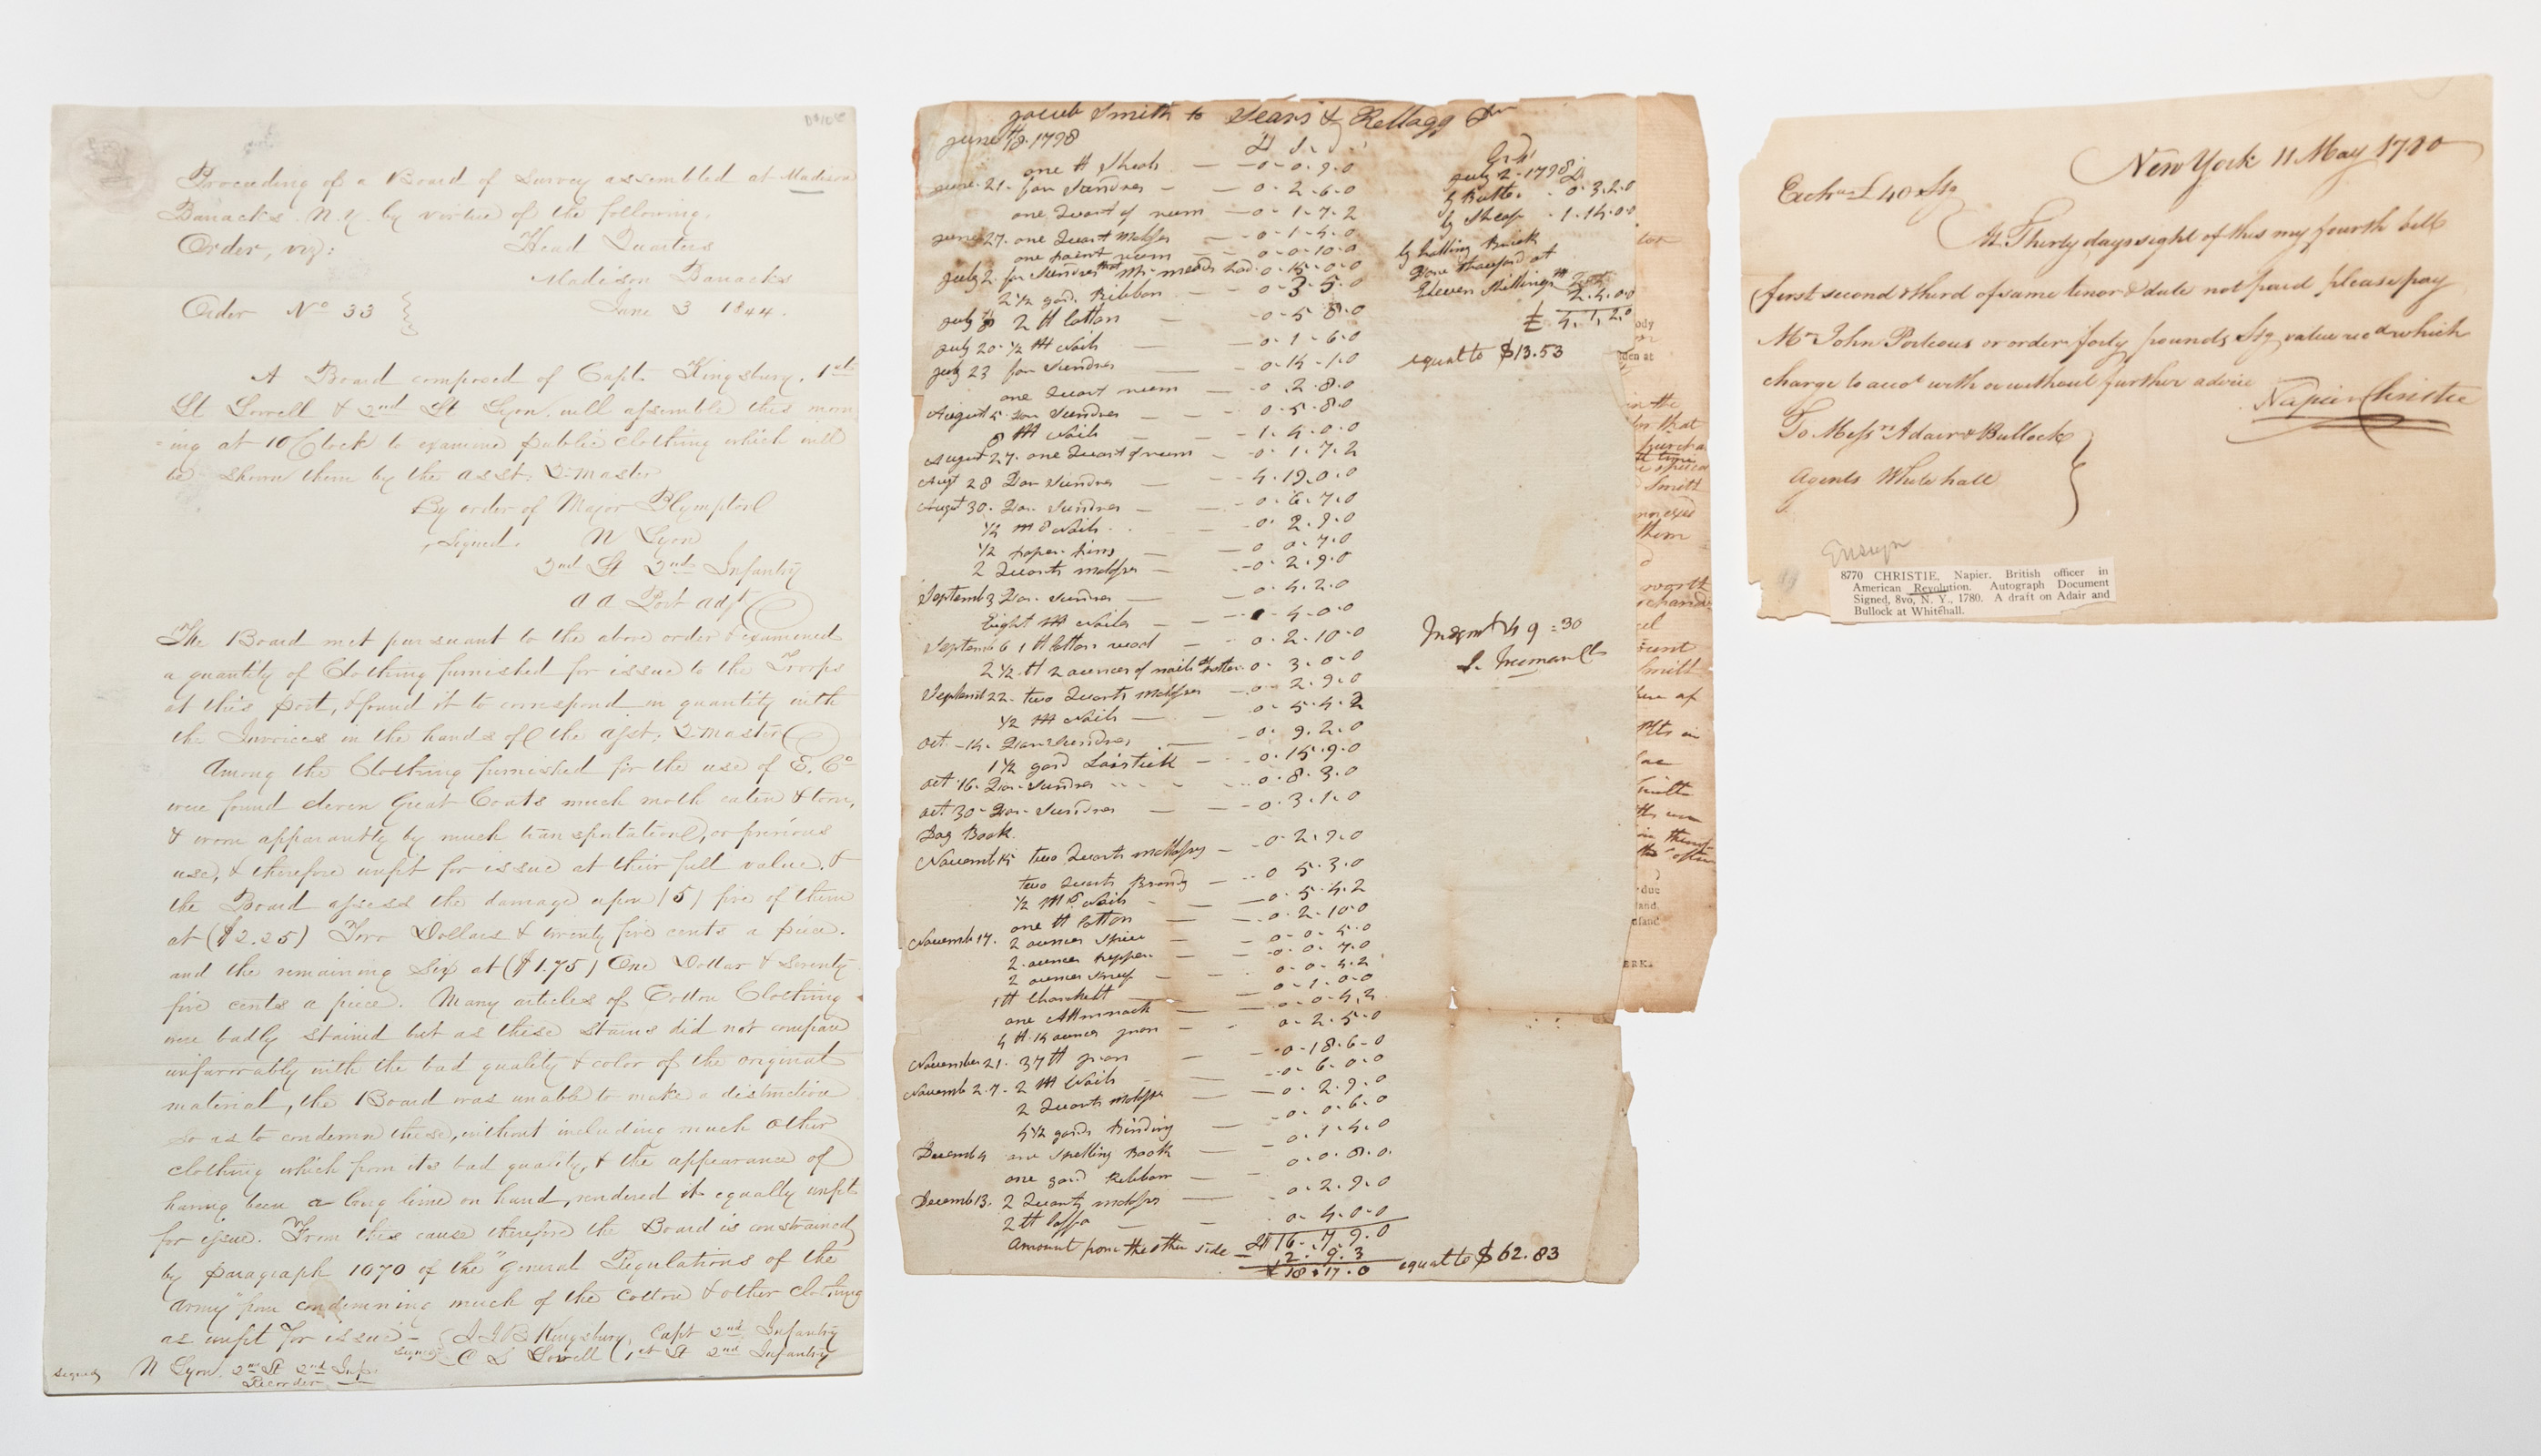 Proceeding of a Board of Survey assembled at Madison
Barracks. N.Y. by virtue of the following,
Order, viz: Head Quarters
Madison Barracks
Order No 33 June 3 1844.
A Board composed of Capt. Kingsbury, 1st
Lt Lovell & 2nd Lt Lyon, will assemble this morn
=ing at 10 Clock to examine public clothing which will
be shown them by the asst: Qr master
By order of Major Plympton
Signed. N Lyon
2nd Lt 2nd Infantry
a a Post adjt
The Board met pursuant to the above order & examined
a quantity of Clothing furnished for issue to the Troops
at this post, & found it to correspond in quantity with
the Invoices in the hands of the asst: Qr master
Among the Clothing furnished for the use of E. Co
were found eleven Great Coats much moth eaten & torn,
& worn apparantly by much transportation, or previous
use, & therefore unfit for issue at their full value, &
the Board assess the damage upon (5) five of them
at ($2.25) Two Dollars & twenty five cents a piece.
and the remaining Six at ($1.75) One Dollar & seventy
five cents a piece. Many articles of Cotton Clothing
were badly stained but as these stains did not compare
unfavorably with the bad quality & color of the original
material, the Board was unable to make a distinction
so as to condemn these, without including much other
clothing which from its bad quality, & the appearance of
having been a long time on hand, rendered it equally unfit
for issue. From this cause therefore the Board is constrained
by paragraph 1070 of the "General Regulations of the
Army" from condemning much of the Cotton & other clothing
as unfit for issue -
J J B Kingsbury, Capt 2nd Infantry
signed C S Lovell 1st Lt 2nd Infantry
signed N Lyon. 2nd Lt 2nd Inf.
Recorder
Jacob Smith to Sears & Kellogg Dr
June 18. 1798
one tt Sheals — 0-0.9.0
June. 21. for Sundres — 0.2.6.0
one Quart of rum — 0-1.7.2
June 27. one Quart Molases — 0-1-4.0
one paint rum — 0-0-10.0
July 2. for Sundres that Mr. meads had. 0.15.0.0
2 1/2 yard. Ribbon — 0-3-5.0
July 8 2 tt Cotton — 0-5 8.0
July 20. 1/2 M Nails — 0.1-6.0
July 23 for Sundres — 0.14-1.0
one Quart rum — 0.2.8.0
August 5. Dor Sundres — 0.5.8.0
8 M Nails — 1.4.0.0
August 27. one Quart of rum — 0.1.7.2
Augt 28 Dor Sundres — 4.19.0.0
August 30. Dor. Sundres — 0.6.7.0
1/2 m 8 Nails — 0.2.9.0
1/2 paper pins — 0 0.7.0
2 Quarts molases — 0.2.9.0
Septemb 3 Dor. Sundres — 0.4.2.0
Eight M Nails — 4-0.0
Septemb 6 1 tt Cotton wool — 0.2.10.0
2 1/2 tt 2 ounces of nails 0. 3.0.0
Septemb 22. two Quarts molases — 0. 2.9.0
1/2 M Nails — 0. 5.4.2
Oct. -14. Dor Sundres — 0. 9.2.0
1 1/2 yard Lastick — 0.15.9.0
Oct 16. Dor Sundres 0.8.3.0
Oct 30 - Dor. Sundres — 0.3.1.0
Day Book.
Novemb 15 two Quarts molases — 0.2.9.0
two Quarts Brandy — 0 5.3.0
1/2 M 8 Nails — 0.5.4.2
one tt Cotton — 0.2.10.0
Novemb 17. 2 ounces Spice — 0-0.5.0
2 ounces pepper. — 0.0.7.0
2 ounces Snuf — 0.0.4.2
1 tt — 0.1.0.0
one Allmanack — 0.0.4.2
4 tt 14 ounces iron — 0.2.5.0
November 21. 37 tt iron — 0.18.6.0
Novemb 27. 2 M Nails — 0.6.0.0
2 Quarts Molases — 0.2.9.0
4 1/2 yards Binding — 0.0.6.0
Decemb 4 one Spelling Book — 0.1.4.0
one yard Ribbon — 0.0.8.0.
Decemb 13. 2 Quarts molases — 0.2.9.0
2 tt — 0.4.0.0
16.7.9.0
Amount from the other side — 2.9.3
£ 18.17.0 equal to $62.83
Cr
July 2. 1798
by Butter. 0.3.2.0
by Sheap . 1.14.0.0
by halling Brick
from thauford at
Eleven Shillings
2.4.0.0
£ 4.1.2.0
equal to $13.53
Judgmt 49=30
New York 11 May 1780
Exch. £40 Stg
At Thirty days sight of this my fourth bill
(first second & third of same tenor & date not paid please pay
Mr John Porteous or order forty pounds Stg value recd which
charge to accot with or without further advice
Napier Christie
To Messrs Adair & Bullock
Agents Whitehall
Ensign
8770 CHRISTIE, Napier. British officer in
American Revolution. Autograph Document
Signed, 8vo, N. Y., 1780. A draft on Adair and
Bullock at Whitehall.